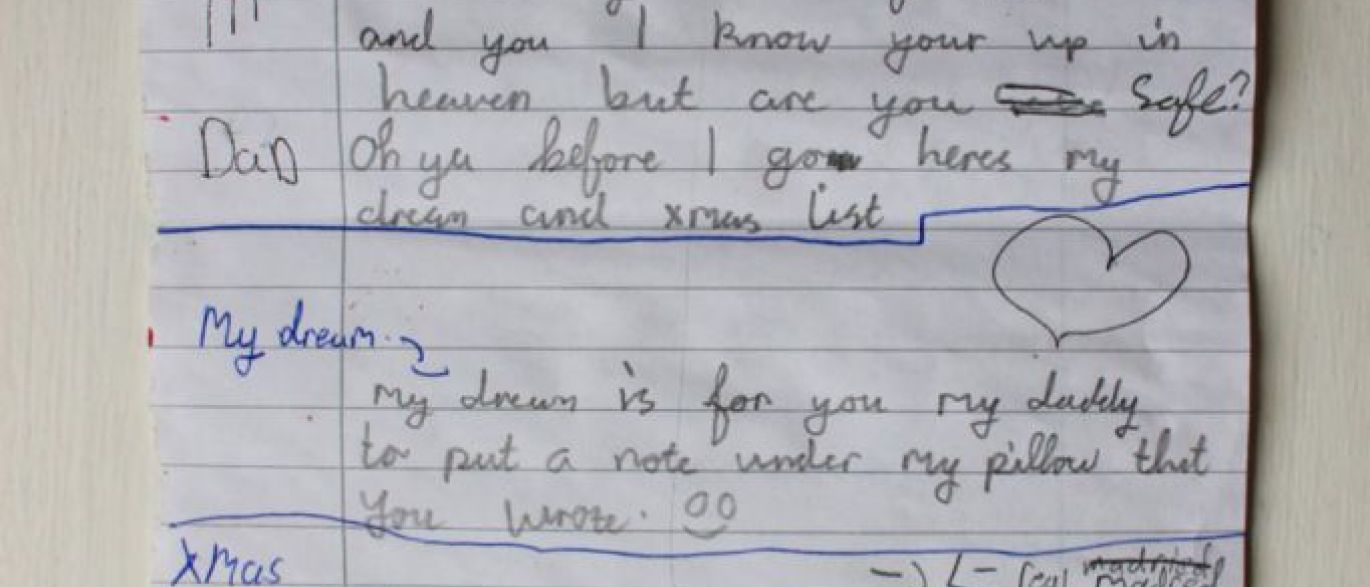 and you I know your up in
heaven but are you Safe?
Dad Oh ya before I go heres my
dream and xmas list
My dream
my dream is for you my daddy
to put a note under my pillow that
you wrote.
XMas